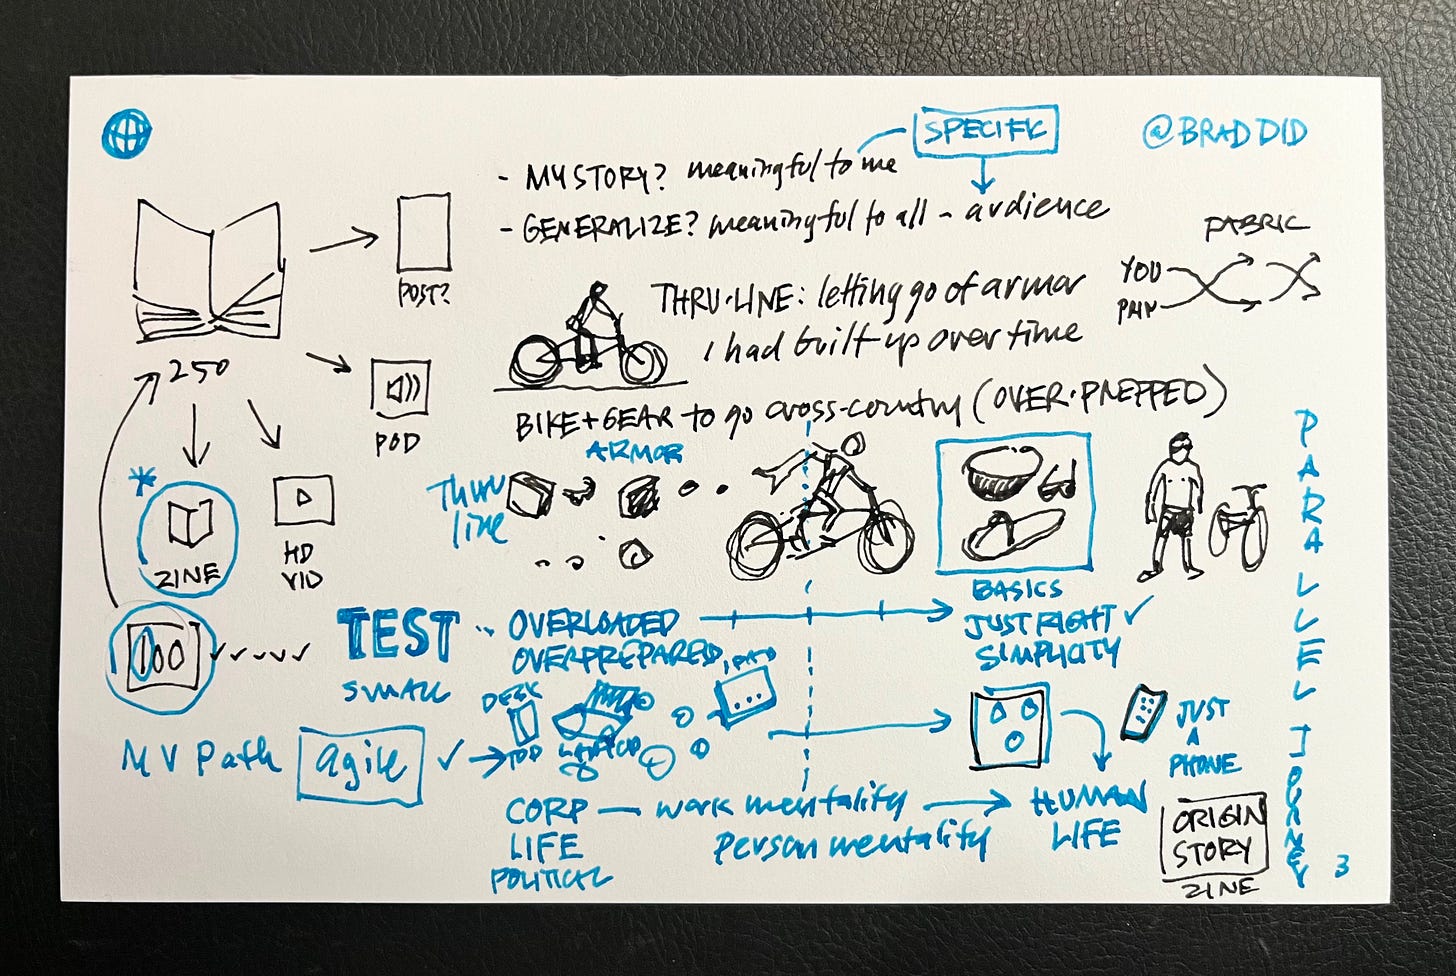 SPECIFIC
@BRADDID
- MY STORY? meaningful to me
- GENERALIZE? meaningful to all - audience
FABRIC
YOU
POST?
THRU-LINE: letting go of armor
I had built up over time
250
POD
BIKE+GEAR to go cross-country (OVER-PREPPED)
ARMOR
THRU
line
*
ZINE
HD
VID
BASICS
100
TEST
SMALL
OVERLOADED
OVERPREPARED
JUST RIGHT ✓
SIMPLICITY
DESK
TOP
LAPTOP
IPAD
JUST
A
PHONE
MV Path
agile
CORP
LIFE
POLITICAL
work mentality
person mentality
HUMAN
LIFE
ORIGIN
STORY
ZINE
PARALLEL JOURNEY
3